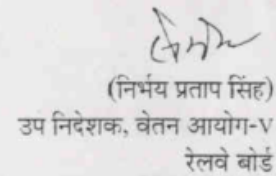 (निर्भय प्रताप सिंह)
उप निदेशक, वेतन आयोग-V
रेलवे बोर्ड